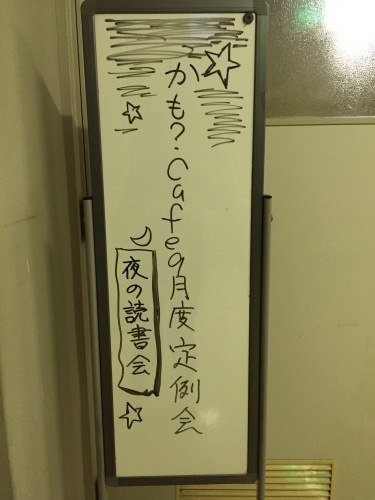 かも?.Cafe9月度定例会
夜の読書会